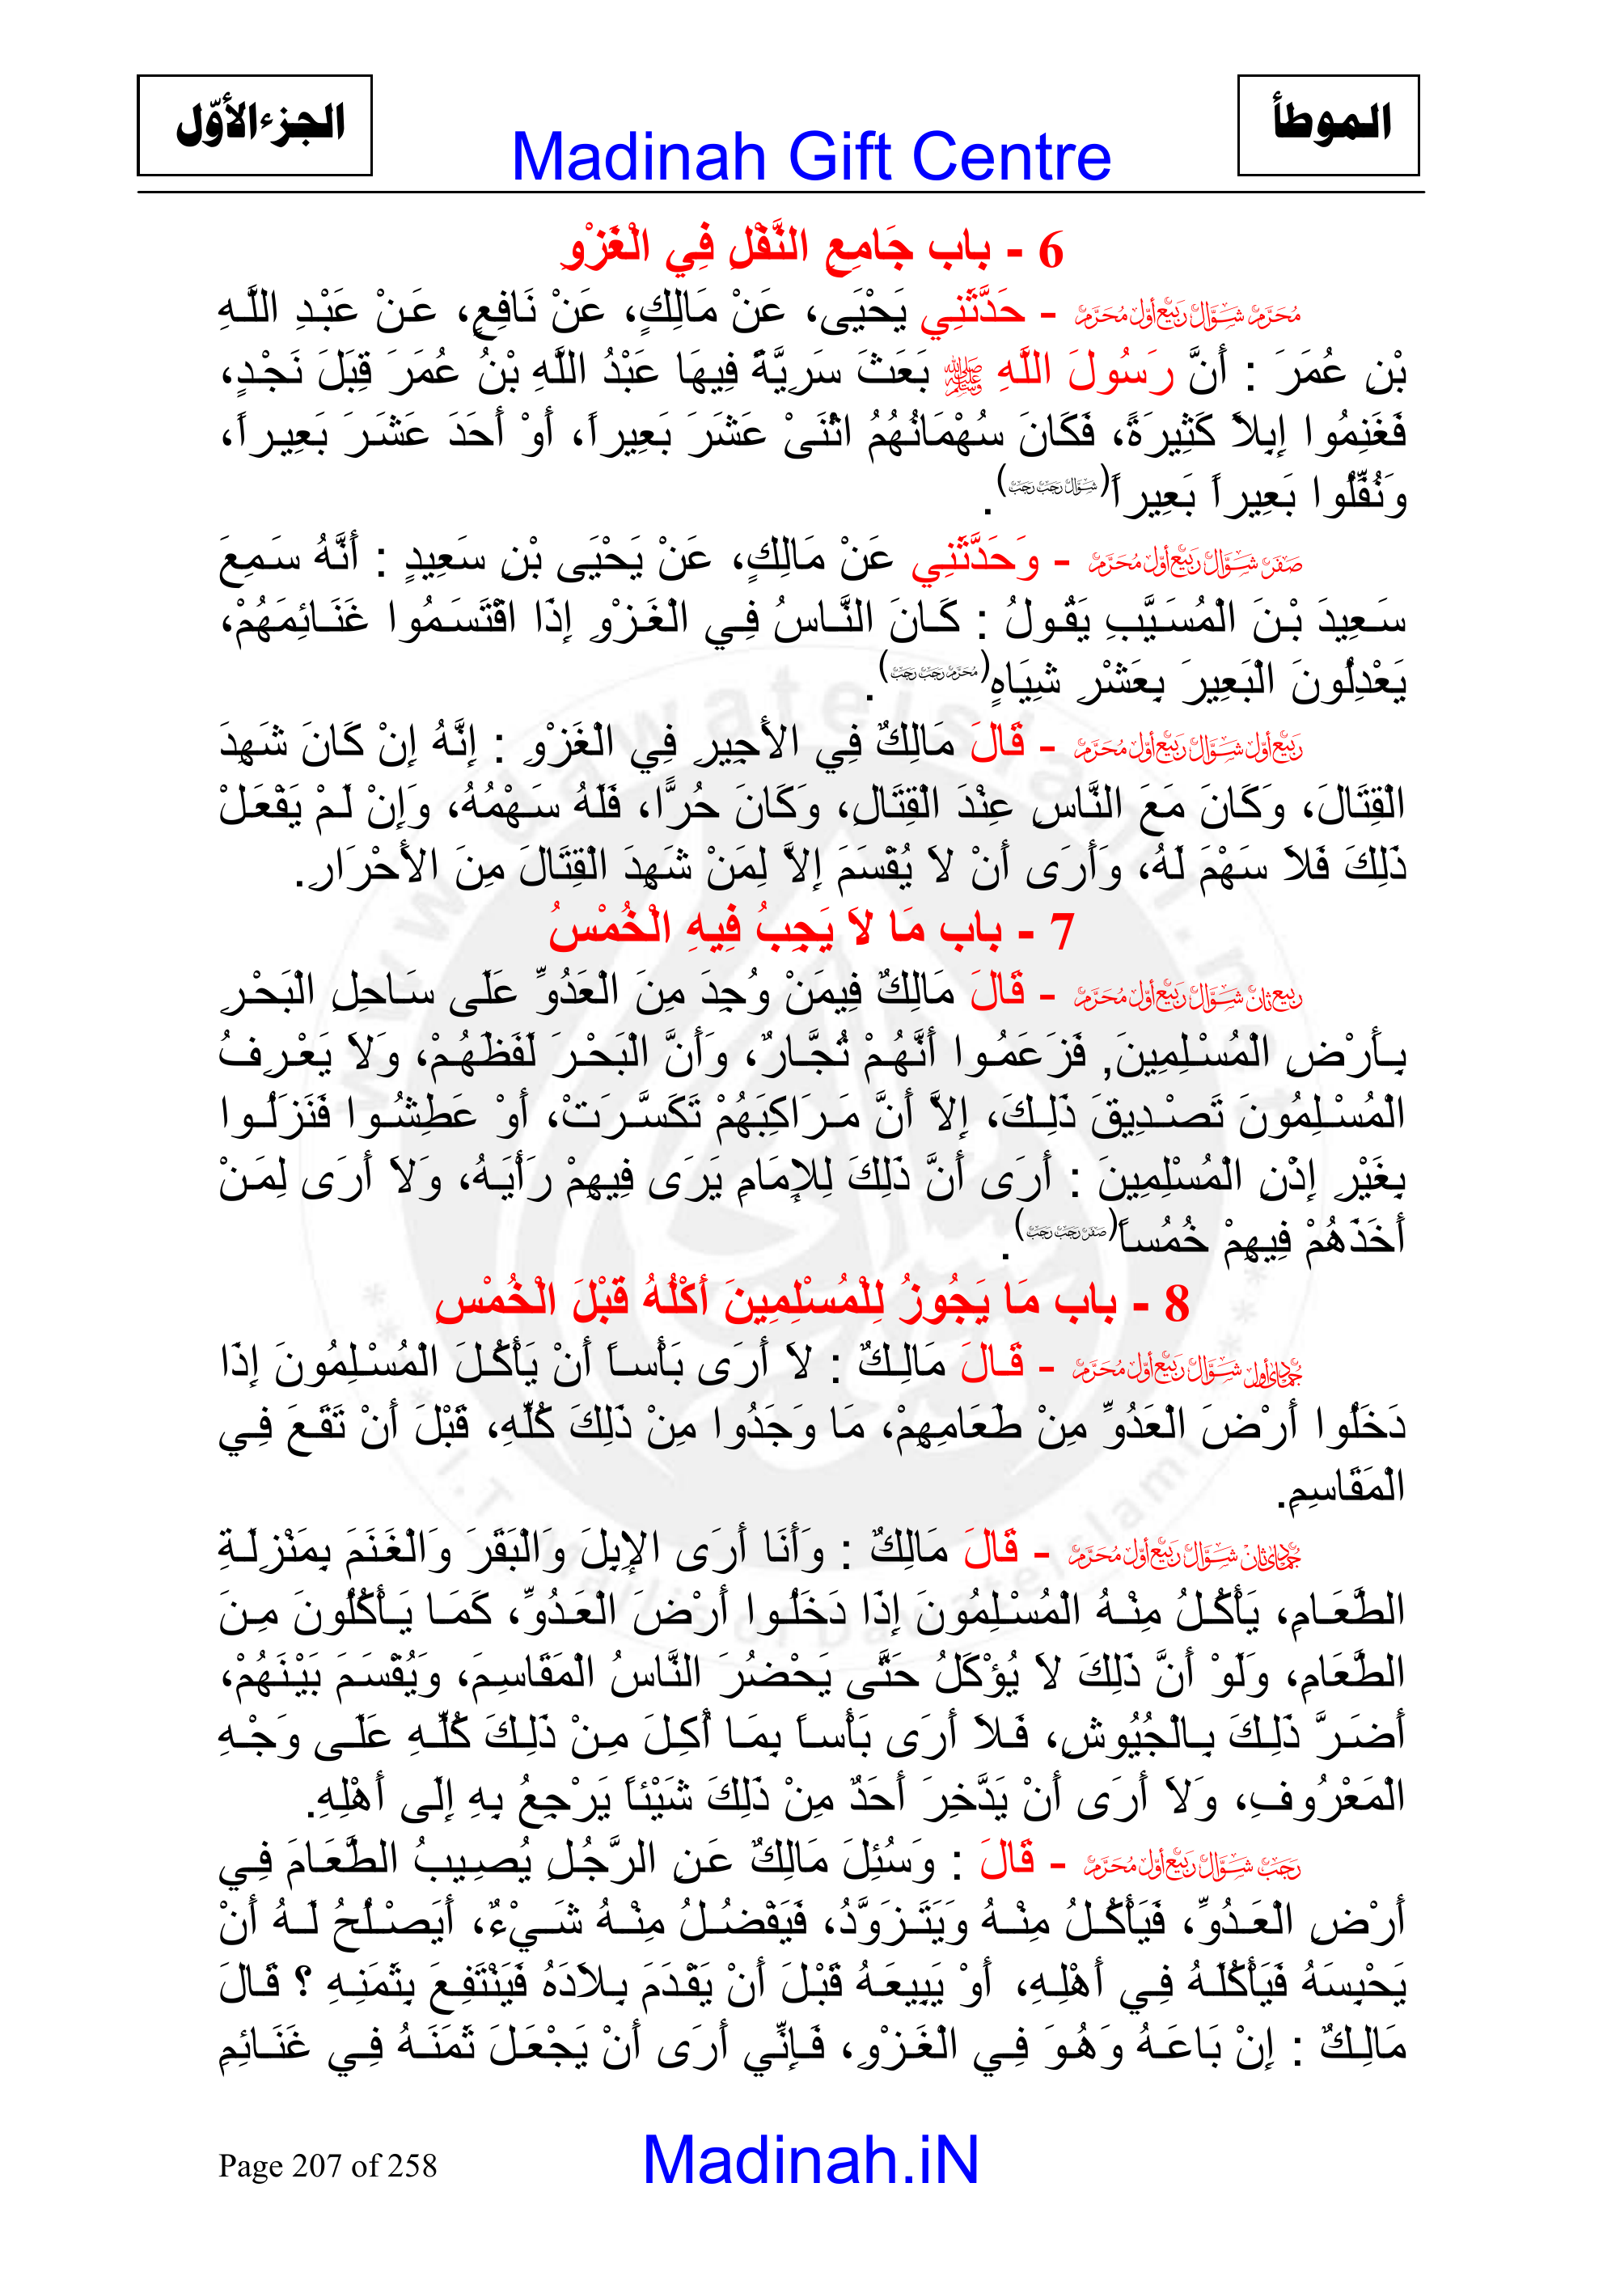 الموطأ
الجزء الأوّل
Madinah Gift Centre
6 - باب جَامِعِ النَّفْلِ فِي الْغَزْوِ
مُحَرَّم شَوَّال رَبِيع أوّل مُحَرَّم - حَدَّثَنِي يَحْيَى، عَنْ مَالِكٍ، عَنْ نَافِعٍ، عَنْ عَبْدِ اللَّهِ
بْنِ عُمَرَ : أَنَّ رَسُولَ اللَّهِ ﷺ بَعَثَ سَرِيَّةً فِيهَا عَبْدُ اللَّهِ بْنُ عُمَرَ قِبَلَ نَجْدٍ،
فَغَنِمُوا إِبِلاً كَثِيرَةً، فَكَانَ سُهْمَانُهُمُ اثْنَىْ عَشَرَ بَعِيراً، أَوْ أَحَدَ عَشَرَ بَعِيراً،
وَنُفِّلُوا بَعِيراً بَعِيراً(شَوَّال رَجَب رَجَب).
صَفَر شَوَّال رَبِيع أوّل مُحَرَّم - وَحَدَّثَنِي عَنْ مَالِكٍ، عَنْ يَحْيَى بْنِ سَعِيدٍ : أَنَّهُ سَمِعَ
سَعِيدَ بْنَ الْمُسَيَّبِ يَقُولُ : كَانَ النَّاسُ فِي الْغَزْوِ إِذَا اقْتَسَمُوا غَنَائِمَهُمْ،
يَعْدِلُونَ الْبَعِيرَ بِعَشْرِ شِيَاهٍ(مُحَرَّم رَجَب رَجَب).
رَبِيع أوّل شَوَّال رَبِيع أوّل مُحَرَّم - قَالَ مَالِكٌ فِي الأَجِيرِ فِي الْغَزْوِ : إِنَّهُ إِنْ كَانَ شَهِدَ
الْقِتَالَ، وَكَانَ مَعَ النَّاسِ عِنْدَ الْقِتَالِ، وَكَانَ حُرًّا، فَلَهُ سَهْمُهُ، وَإِنْ لَمْ يَفْعَلْ
ذَلِكَ فَلاَ سَهْمَ لَهُ، وَأَرَى أَنْ لاَ يُقْسَمَ إِلاَّ لِمَنْ شَهِدَ الْقِتَالَ مِنَ الأَحْرَارِ.
7 - باب مَا لاَ يَجِبُ فِيهِ الْخُمْسُ
ربيع ثان شَوَّال رَبِيع أوّل مُحَرَّم - قَالَ مَالِكٌ فِيمَنْ وُجِدَ مِنَ الْعَدُوِّ عَلَى سَاحِلِ الْبَحْرِ
بِأَرْضِ الْمُسْلِمِينَ, فَزَعَمُوا أَنَّهُمْ تُجَّارٌ، وَأَنَّ الْبَحْرَ لَفَظَهُمْ، وَلاَ يَعْرِفُ
الْمُسْلِمُونَ تَصْدِيقَ ذَلِكَ، إِلاَّ أَنَّ مَرَاكِبَهُمْ تَكَسَّرَتْ، أَوْ عَطِشُوا فَنَزَلُوا
بِغَيْرِ إِذْنِ الْمُسْلِمِينَ : أَرَى أَنَّ ذَلِكَ لِلإِمَامِ يَرَى فِيهِمْ رَأْيَهُ، وَلاَ أَرَى لِمَنْ
أَخَذَهُمْ فِيهِمْ خُمُساً(صَفَر رَجَب رَجَب).
8 - باب مَا يَجُوزُ لِلْمُسْلِمِينَ أَكْلُهُ قَبْلَ الْخُمْسِ
جمادى أول شَوَّال رَبِيع أوّل مُحَرَّم - قَالَ مَالِكٌ : لاَ أَرَى بَأْساً أَنْ يَأْكُلَ الْمُسْلِمُونَ إِذَا
دَخَلُوا أَرْضَ الْعَدُوِّ مِنْ طَعَامِهِمْ، مَا وَجَدُوا مِنْ ذَلِكَ كُلِّهِ، قَبْلَ أَنْ تَقَعَ فِي
الْمَقَاسِمِ.
جمادى ثان شَوَّال رَبِيع أوّل مُحَرَّم - قَالَ مَالِكٌ : وَأَنَا أَرَى الإِبِلَ وَالْبَقَرَ وَالْغَنَمَ بِمَنْزِلَةِ
الطَّعَامِ، يَأْكُلُ مِنْهُ الْمُسْلِمُونَ إِذَا دَخَلُوا أَرْضَ الْعَدُوِّ، كَمَا يَأْكُلُونَ مِنَ
الطَّعَامِ، وَلَوْ أَنَّ ذَلِكَ لاَ يُؤْكَلُ حَتَّى يَحْضُرَ النَّاسُ الْمَقَاسِمَ، وَيُقْسَمَ بَيْنَهُمْ،
أَضَرَّ ذَلِكَ بِالْجُيُوشِ، فَلاَ أَرَى بَأْساً بِمَا أُكِلَ مِنْ ذَلِكَ كُلِّهِ عَلَى وَجْهِ
الْمَعْرُوفِ، وَلاَ أَرَى أَنْ يَدَّخِرَ أَحَدٌ مِنْ ذَلِكَ شَيْئاً يَرْجِعُ بِهِ إِلَى أَهْلِهِ.
رَجَب شَوَّال رَبِيع أوّل مُحَرَّم - قَالَ : وَسُئِلَ مَالِكٌ عَنِ الرَّجُلِ يُصِيبُ الطَّعَامَ فِي
أَرْضِ الْعَدُوِّ، فَيَأْكُلُ مِنْهُ وَيَتَزَوَّدُ، فَيَفْضُلُ مِنْهُ شَيْءٌ، أَيَصْلُحُ لَهُ أَنْ
يَحْبِسَهُ فَيَأْكُلَهُ فِي أَهْلِهِ، أَوْ يَبِيعَهُ قَبْلَ أَنْ يَقْدَمَ بِلاَدَهُ فَيَنْتَفِعَ بِثَمَنِهِ ؟ قَالَ
مَالِكٌ : إِنْ بَاعَهُ وَهُوَ فِي الْغَزْوِ، فَإِنِّي أَرَى أَنْ يَجْعَلَ ثَمَنَهُ فِي غَنَائِمِ
Page 207 of 258
Madinah.iN